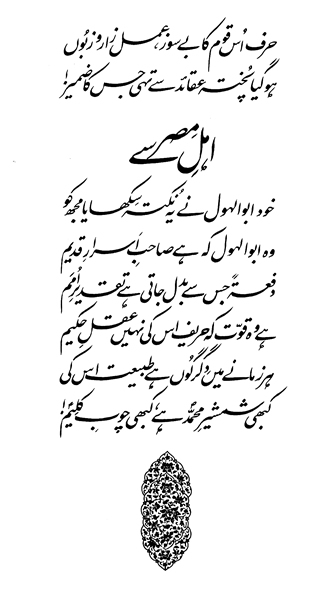 حرف اُس قوم کا بے سوز، عمل زار و زبُوں
ہو گیا پُختہ عقائد سے تہی جس کا ضمیر!
اہلِ مِصر سے
خود ابوالہول نے یہ نُکتہ سِکھایا مجھ کو
وہ ابوالہول کہ ہے صاحبِ اَسرارِ قدیم
دفعۃً جس سے بدل جاتی ہے تقدیرِ اُمَم
ہے وہ قوّت کہ حریف اس کی نہیں عقلِ حکیم
ہر زمانے میں دِگرگُوں ہے طبیعت اس کی
کبھی شمشیرِ محمدؐ ہے، کبھی چوبِ کلیمؑ!